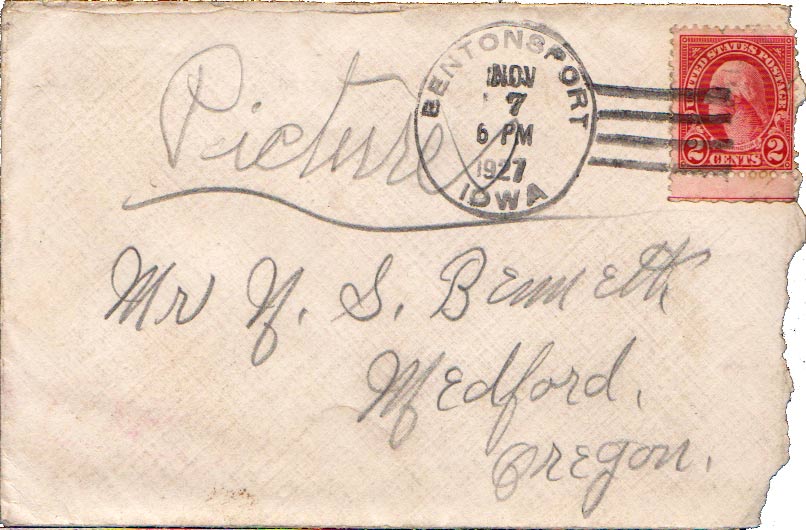 Picture
BENTONSPORT
NOV
7
6 PM
1927
IOWA
UNITED STATES POSTAGE
2 CENTS 2
Mr N. S. Bennett
Medford,
Oregon.